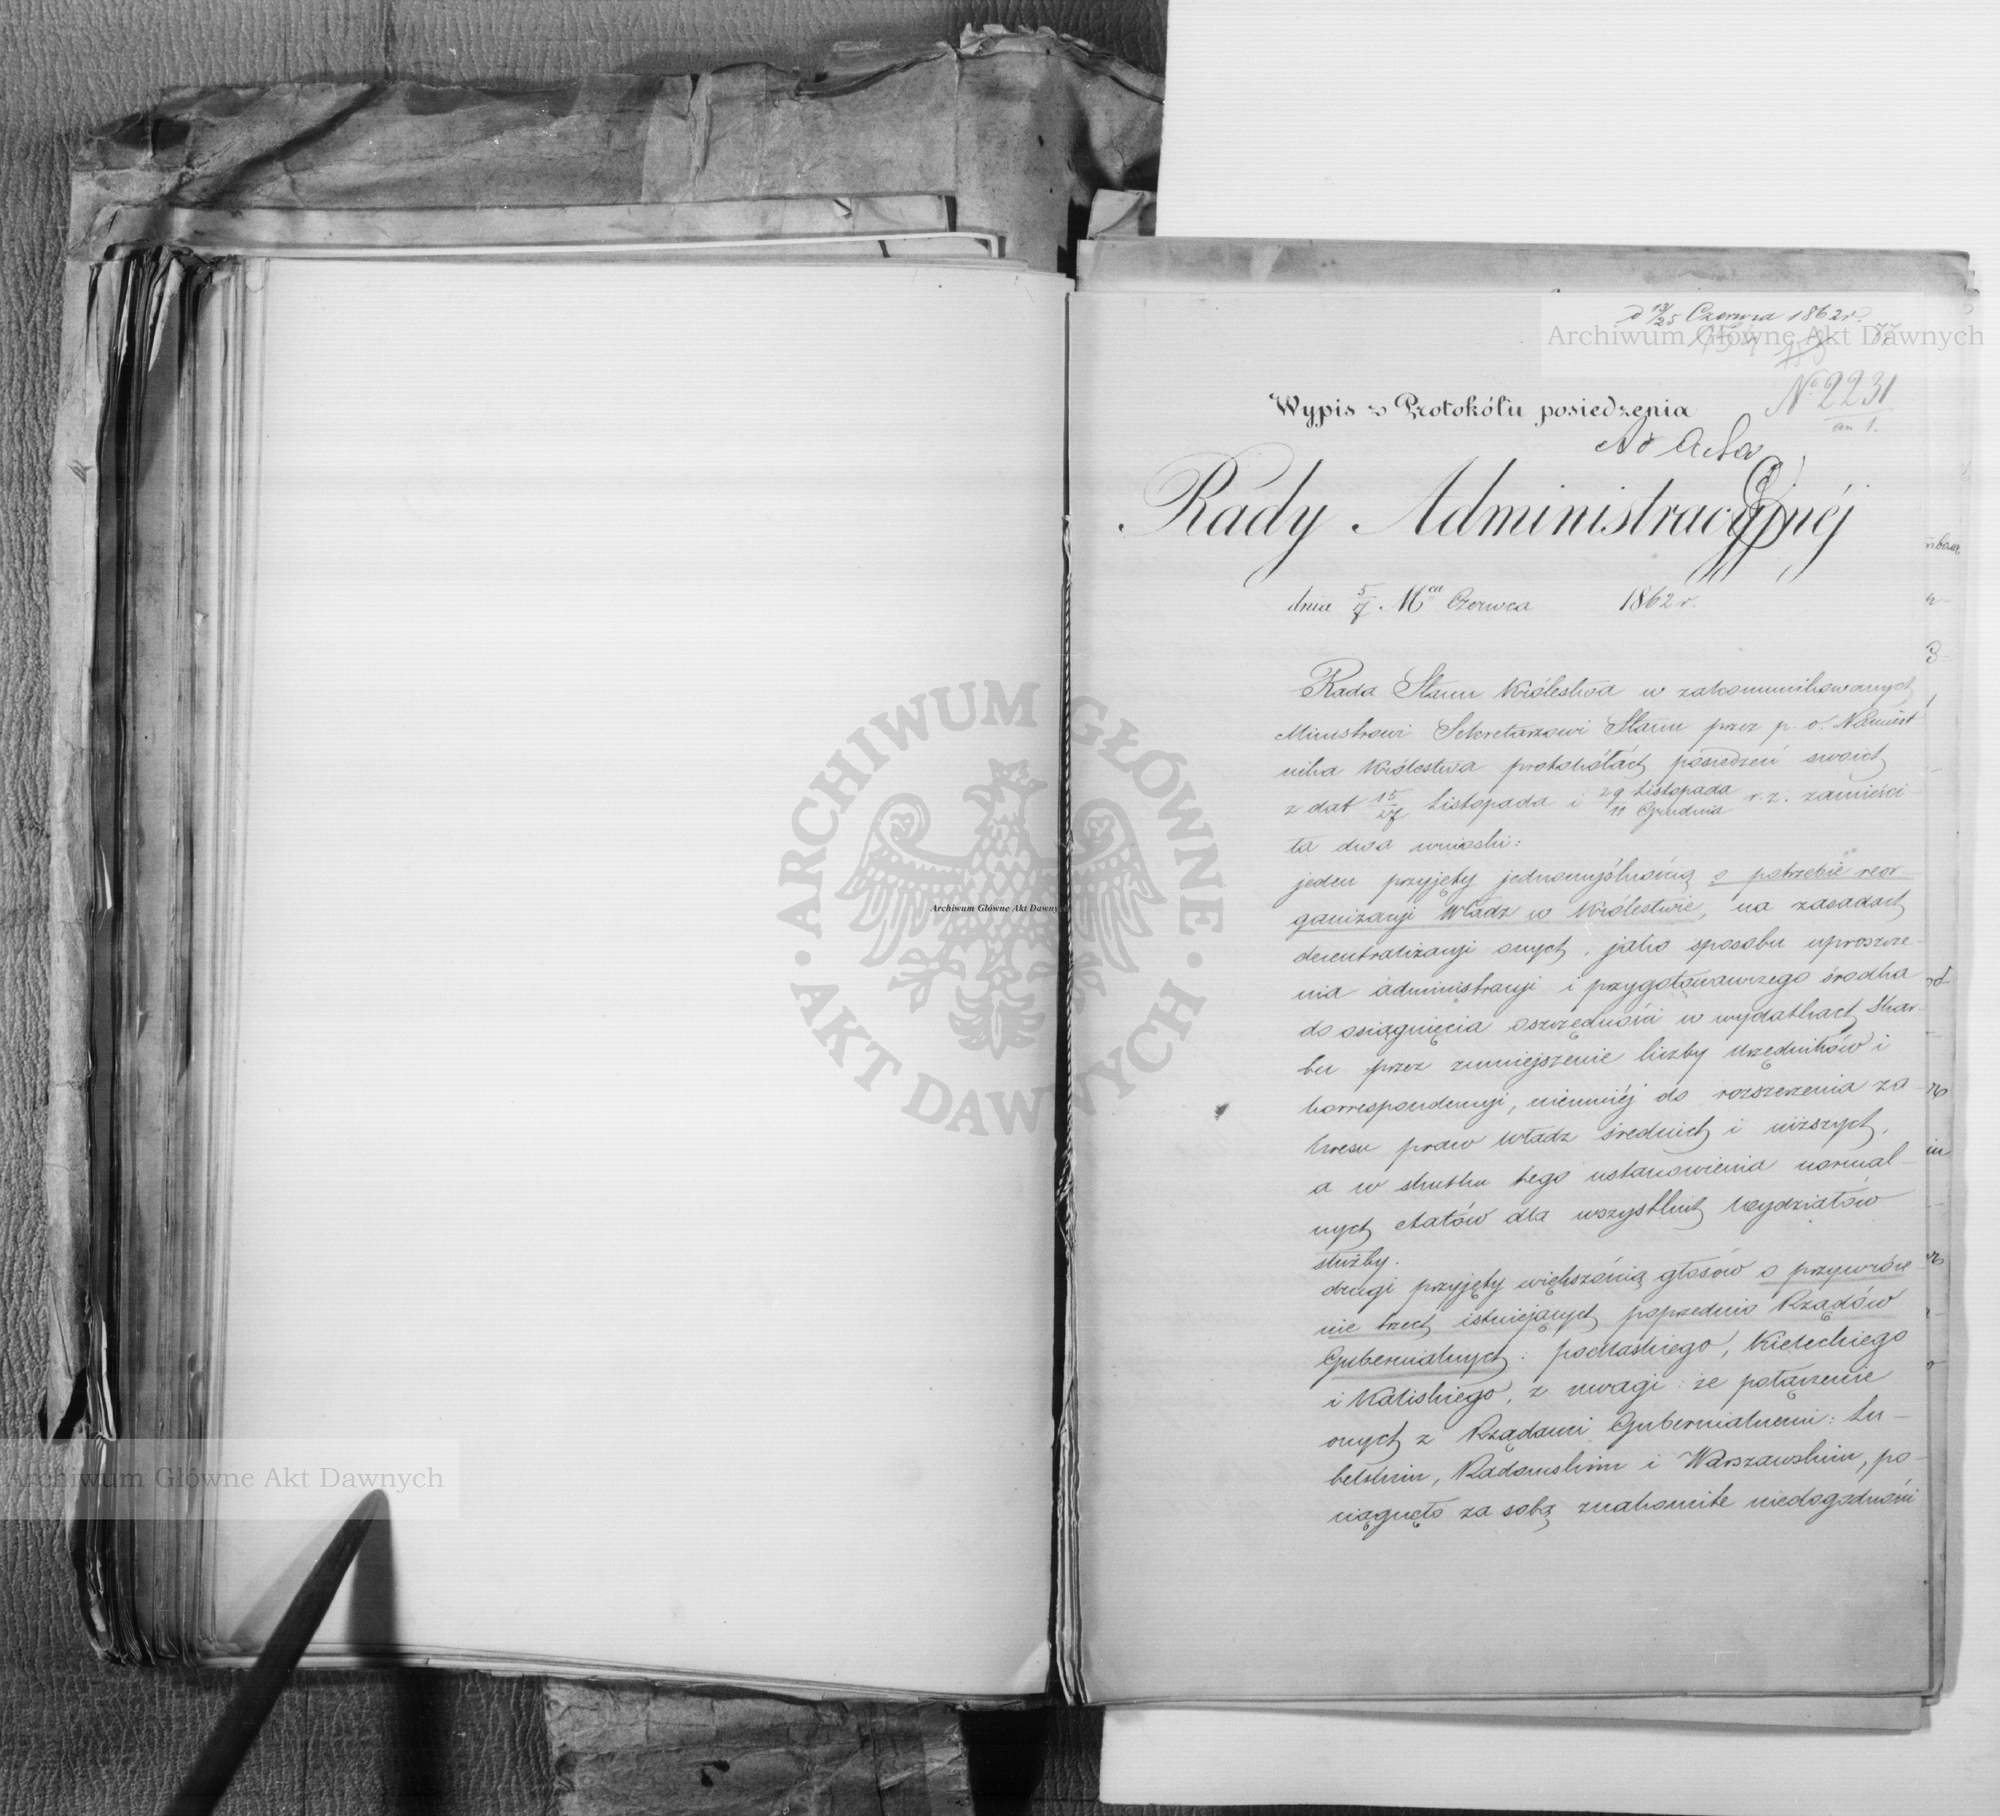 d 13/25 Czerwca 1862 r.
Archiwum Główne Akt Dawnych
77
No 2231
an 1.
Wypis z Protokółu posiedzenia
Ad Acta
Rady Administracyjnéj
dnia 5/17 Mca Czerwca 1862 r.
Rada Stanu Królestwa w zakommunikowanych
Ministrowi Sekretarzowi Stanu przez p. o. Namiest-
nika Królestwa protokółach posiedzeń swoich
z dat 15/27 Listopada i 29 Listopada/11 Grudnia r. z. zamieści-
ła dwa wnioski:
jeden przyjęty jednomyślnością o potrzebie reor-
ganizacyi Władz w Królestwie, na zasadach
decentralizacyi onych, jako sposobu uproszcze-
nia administracyi i przygotowawczego środka
do osiągnięcia oszczędności w wydatkach Skar-
bu przez zmniejszenie liczby Urzędników i
korrespondencyi, niemniéj do rozszerzenia za-
kresu praw Władz średnich i niższych,
a w skutku tego ustanowienia normal-
nych etatów dla wszystkich Wydziałów
służby.
drugi przyjęty większością głosów o przywróce-
nie trzech istniejących poprzednio Rządów
Gubernialnych: podlaskiego, Kieleckiego
i Kaliskiego, z uwagi: że połączenie
onych z Rządami Gubernialnemi: Lu-
belskim, Radomskim i Warszawskim, po-
ciągnęło za sobą znakomite niedogodności
ARCHIWUM GŁÓWNE AKT DAWNYCH
Archiwum Główne Akt Dawnych
Archiwum Główne Akt Dawnych